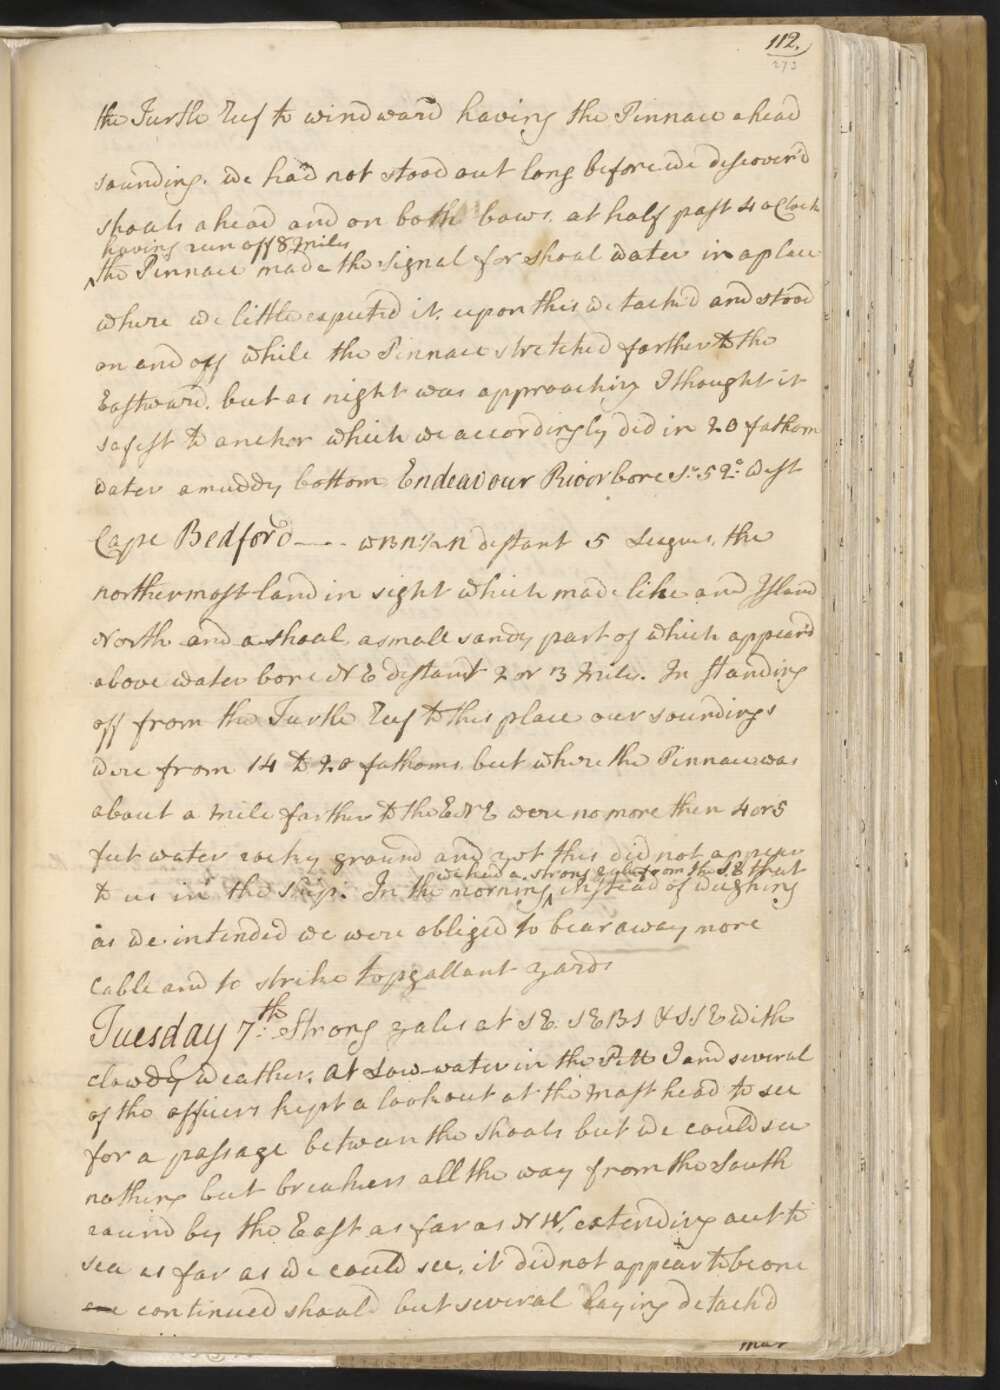 112.
273
the Turtle Reef to windward having the Pinnace ahead
sounding. we had not stood out long before we discover'd
shoals ahead and on both bows. at half past 4 oClock
having run off 8 Miles
the Pinnace made the signal for shoal water in a place
where we little expected it. upon this we tack'd and stood
on and off while the Pinnace stretched farther to the
Eastward. but as night was approaching I thought it
safest to anchor which we accordingly did in 20 fathom
water a muddy bottom Endeavour River bore S.° 52° West
Cape Bedford —— WBN½N distant 5 Leagues. the
northermost land in sight which made like and Island
North and a shoal, a small sandy part of which appear'd
above water bore NE distant 2 or 3 Miles. In standing
off from the Turtle Reef to this place our soundings
were from 14 to 20 fathoms, but where the Pinnace was
about a Mile farther to the ENE were no more then 4 or 5
feet water rocky ground and yet this did not appear
we had a strong gale from the SE that
to us in the Ship. In the morning instead of weighing
as we intended we were obliged to bear away more
Cable and to strike topgallant yards
Tuesday 7th. Strong gales at SE. SEBS & SSE with
clowdy weather. at Low-water in the PM I and several
of the officers kept a lookout at the Mast head to see
for a passage between the shoals but we could see
nothing but breakers all the way from the South
round by the East as far as NW. extending out to
sea as far as we could see. it did not appear to be one
continued shoal but several laying detach'd